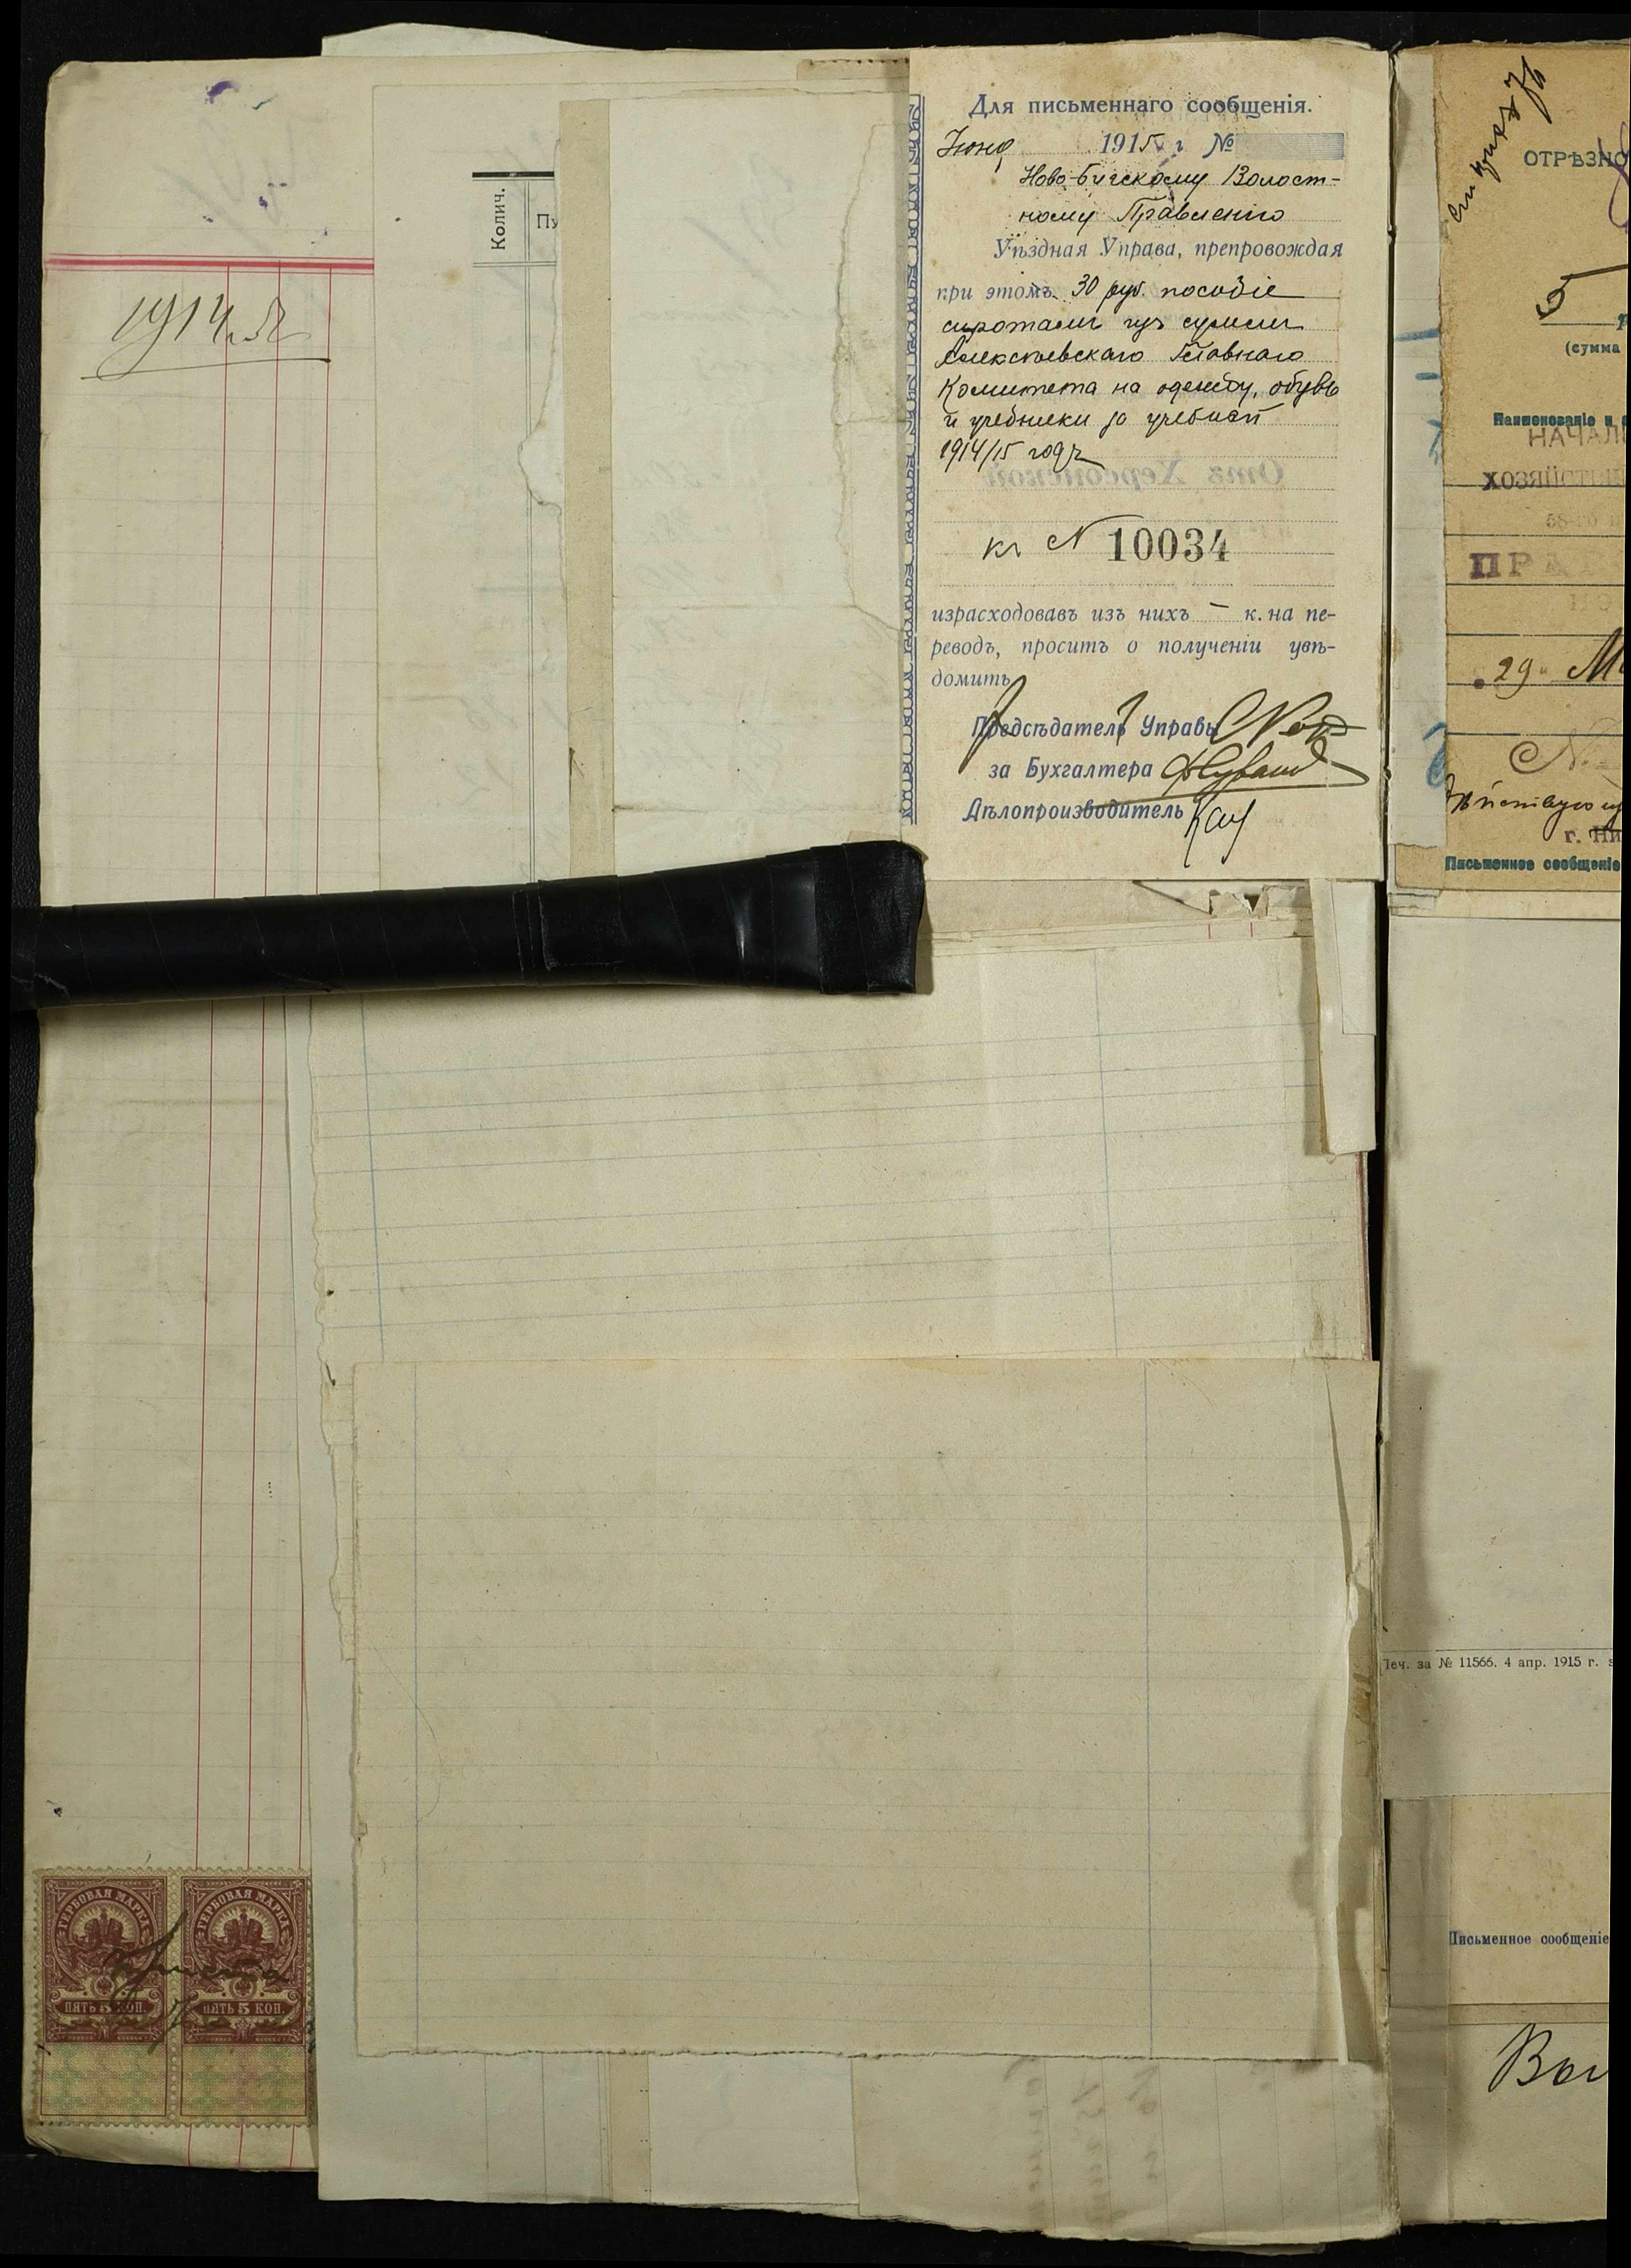 1914
Колич.
Пу
Для письменнаго сообщенія.
Іюня 1915 г. №
Ново-Бугскому Волост-
ному Правленію
Уѣздная Управа, препровождая
при этомъ 30 руб. пособіе
сиротамъ изъ суммъ
Алексѣевскаго Главнаго
Комитета на одежду, обувь
и учебники за учебный
1914/15 годъ
Отъ Херсонской
къ № 10034
израсходовавъ изъ нихъ — к. на пе-
реводъ, проситъ о полученіи увѣ-
домить
Предсѣдатель Управы
за Бухгалтера
Дѣлопроизводитель
ГЕРБОВАЯ МАРКА
ПЯТЬ 5 КОП.
ГЕРБОВАЯ МАРКА
ПЯТЬ 5 КОП.
ОТРѢЗНО
5
(сумма
Наименованіе и
НАЧАЛЬ
ХОЗЯЙСТВ
ПРА
29
г.
Письменное сообщеніе
Печ. за № 11566. 4 апр. 1915 г.
Письменное сообщеніе